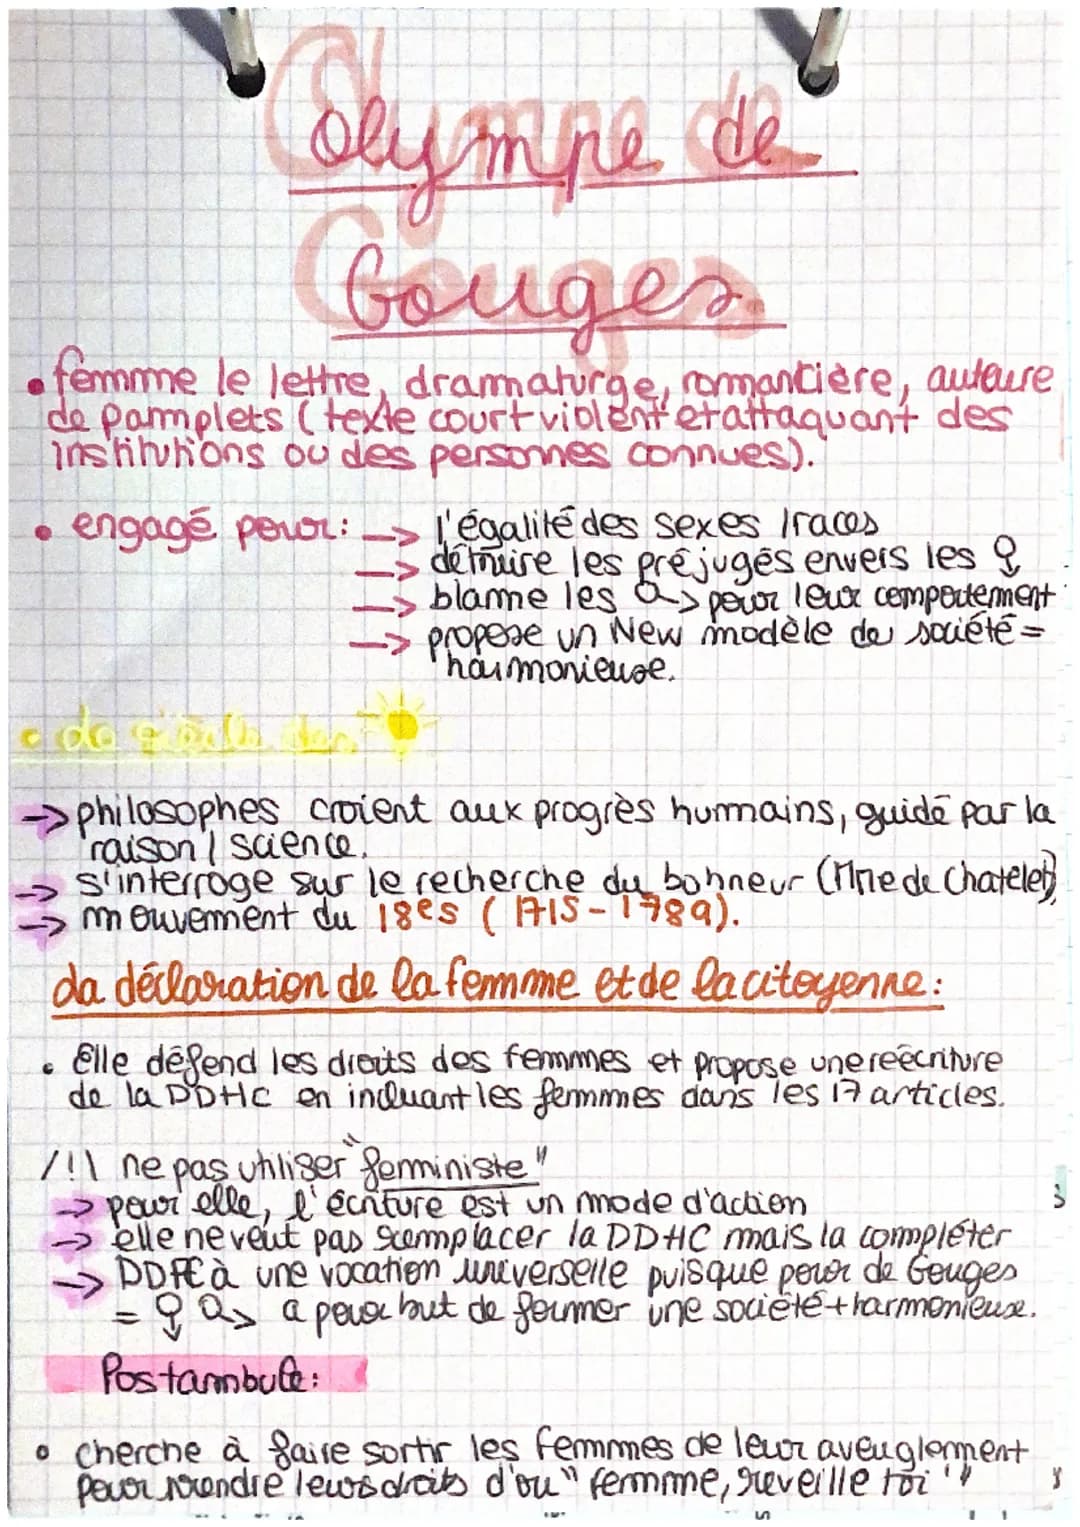 Olympe de
Gouges
• femme le lettre, dramaturge, romantière, auteure
de pamplets (texte court violent et attaquant des
institutions ou des personnes connues).
• engagé pour: --> l'égalité des sexes / races
--> détruire les préjugés envers les ♀
--> blame les ♂ pour leur comportement
--> propose un New modèle de société =
harmonieuse.
• Le siècle des
-> philosophes croient aux progrès humains, guidé par la
raison / science.
-> s'interroge sur le recherche du bonheur (Mme de Chatelet)
-> mouvement du 18es (1715-1789).
La déclaration de la femme et de la citoyenne:
• Elle défend les droits des femmes et propose une reécriture
de la DDHC en incluant les femmes dans les 17 articles.
/!\ ne pas utiliser "feministe"
-> pour elle, l'écriture est un mode d'action
-> elle ne veut pas remplacer la DDHC mais la compléter
-> DDFC à une vocation universelle puisque pour de Gouges
= ♀ ♂ a pour but de former une société + harmonieuse.
Postambule:
• cherche à faire sortir les femmes de leur aveuglement
pour prendre leurs droits d'ou "femme, reveille toi"